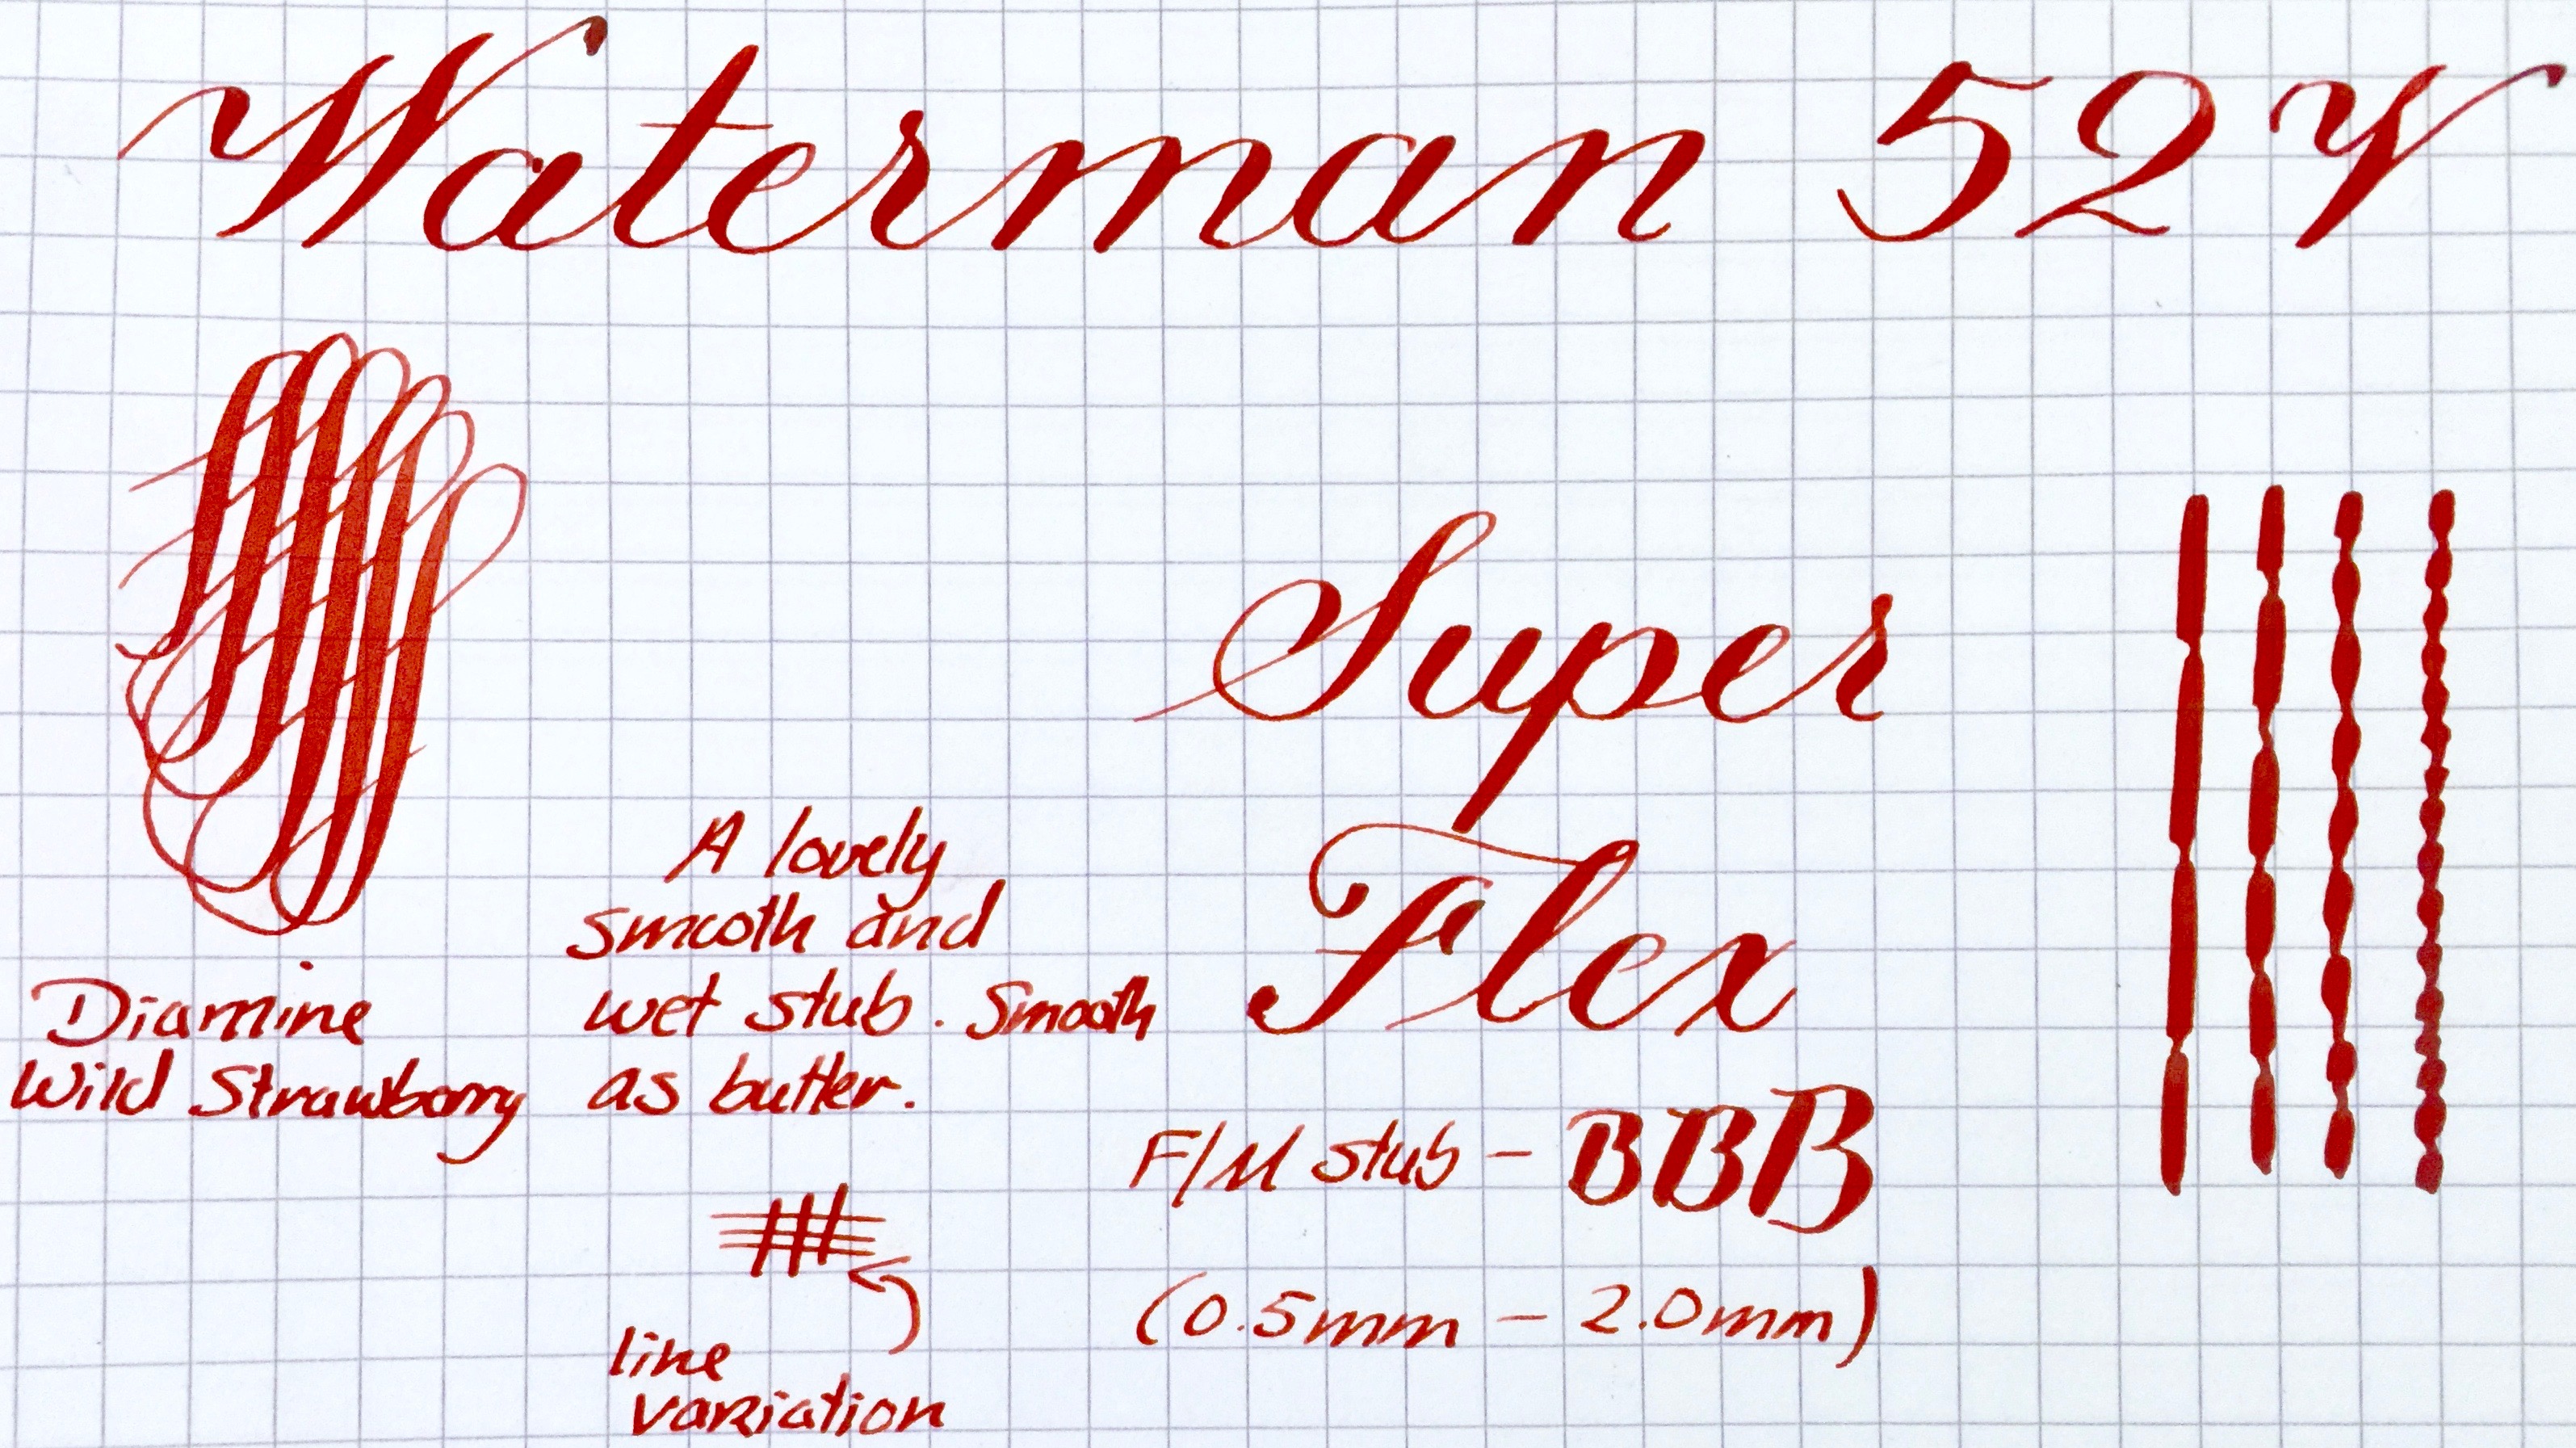 Waterman 52 V
Super
Flex
A lovely
smooth and
wet stub. Smooth
as butter.
Diamine
Wild Strawberry
F/M stub - BBB
(0.5mm - 2.0mm)
line
variation